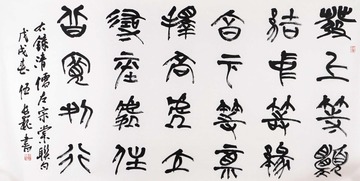 發上等願
結中等緣
享下等福
擇高處立
尋平處住
向寬處行
右錄清儒左宗棠聯句
戊戌春